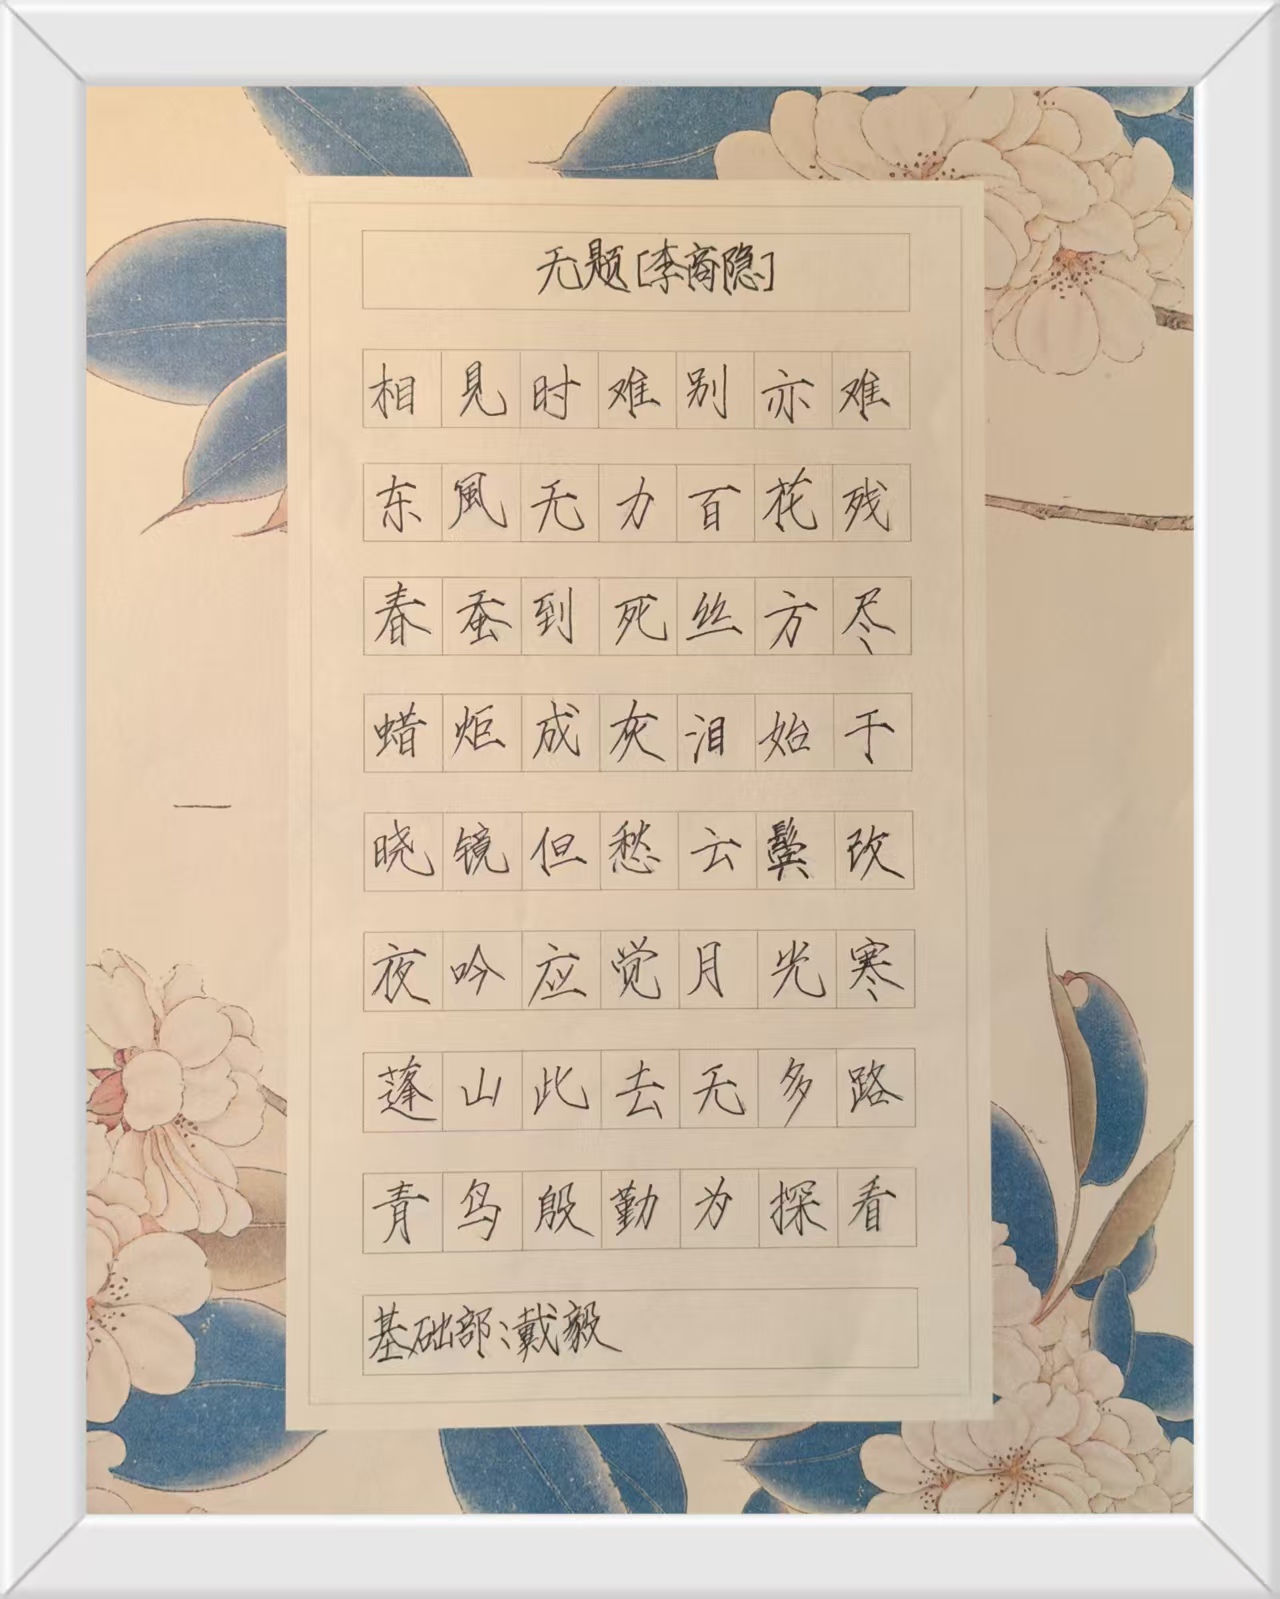 无题[李商隐]
相见时难别亦难
东風无力百花残
春蚕到死丝方尽
蜡炬成灰泪始干
晓镜但愁云鬓改
夜吟应觉月光寒
蓬山此去无多路
青鸟殷勤为探看
基础部:戴毅